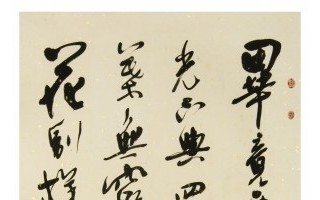 畢竟
光不與四
葉無窮
花別樣